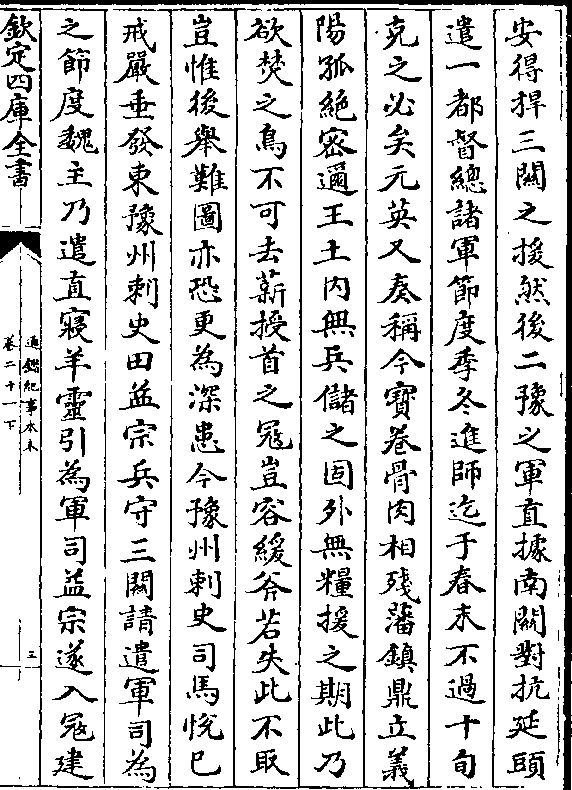 安得捍三闗之援然後二豫之軍直據南闗對抗延頭
遣一都督總諸軍節度季冬進師迄于春末不過十旬
克之必矣元英又奏稱今寳卷骨肉相殘藩鎮鼎立義
陽孤絶密邇王土内無兵儲之固外無糧援之期此乃
欲焚之鳥不可去薪授首之冦豈容緩斧若失此不取
豈惟後舉難圖亦恐更為深患今豫州刺史司馬悦已
戒嚴垂發東豫州刺史田益宗兵守三闗請遣軍司為
之節度魏主乃遣直寢羊靈引為軍司益宗遂入冦建
欽定四庫全書
通鑑紀事本末
卷二十一下
三